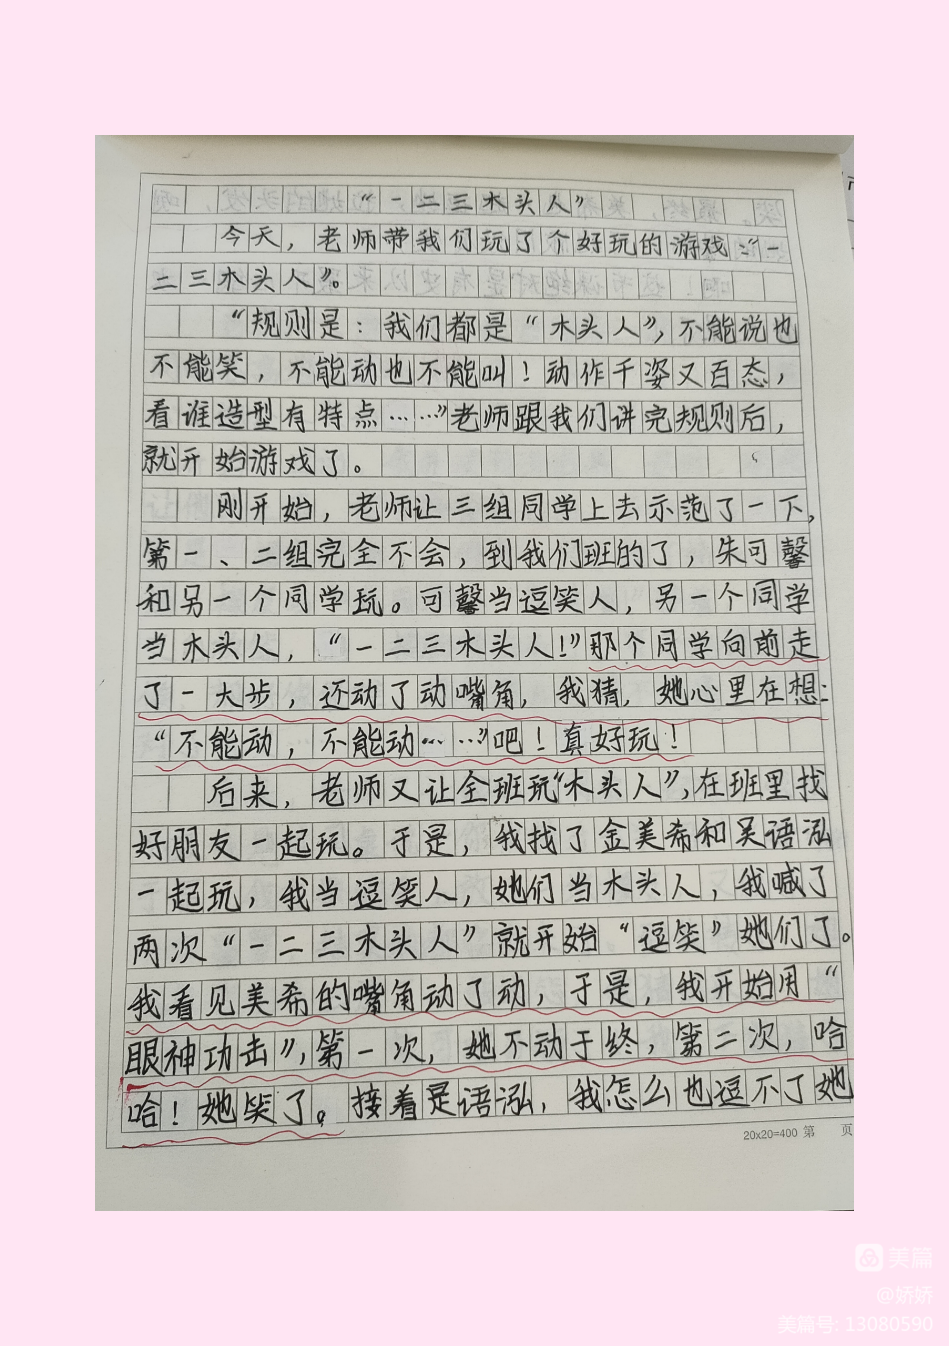 “一二三木头人”
今天，老师带我们玩了个好玩的游戏：“一
二三木头人”。
“规则是：我们都是“木头人”，不能说也
不能笑，不能动也不能叫！动作千姿又百态，
看谁造型有特点……”老师跟我们讲完规则后，
就开始游戏了。
刚开始，老师让三组同学上去示范了一下，
第一、二组完全不会，到我们班的了，朱可馨
和另一个同学玩。可馨当逗笑人，另一个同学
当木头人，“一二三木头人！”那个同学向前走
了一大步，还动了动嘴角，我猜，她心里在想：
“不能动，不能动……”吧！真好玩！
后来，老师又让全班玩“木头人”，在班里找
好朋友一起玩。于是，我找了金美希和吴语泓
一起玩，我当逗笑人，她们当木头人，我喊了
两次“一二三木头人”就开始“逗笑”她们了。
我看见美希的嘴角动了动，于是，我开始用“
眼神功击”，第一次，她不动于终，第二次，哈
哈！她笑了。接着是语泓，我怎么也逗不了她
20x20=400 第 页
美篇
@娇娇
美篇号: 13080590